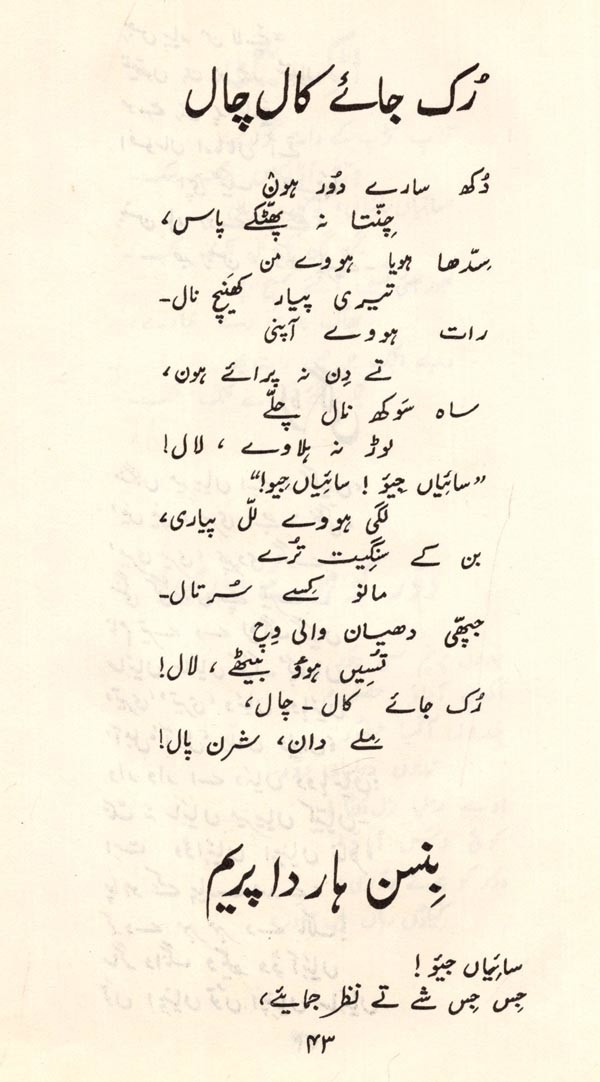 رُک جائے کال چال
دُکھ سارے دُور ہون
چِنّتا نہ پھٹکے پاس،
سِدّھا ہویا ہووے من
تیری پیار کھینچ نال۔
رات ہووے آپنی
تے دِن نہ پرائے ہون،
ساہ سَوکھ نال چلّے
لوڑ نہ ہلاوے ، لال!
”سائیاں جیؤ ! سائیاں جیو!“
لگی ہووے للّ پیاری،
بن کے سنگیت تُرے
مانو کِسے سُرتال۔
جپھّی دھیان والی وِچ
تُسِیں ہوؤ بیٹھے ، لال!
رُک جائے کال ۔ چال،
مِلے دان، شرن پال!
بِنسن ہار دا پریم
سائیاں جیؤ !
جِس جِس شے تے نظر جمایئے،
۴۳